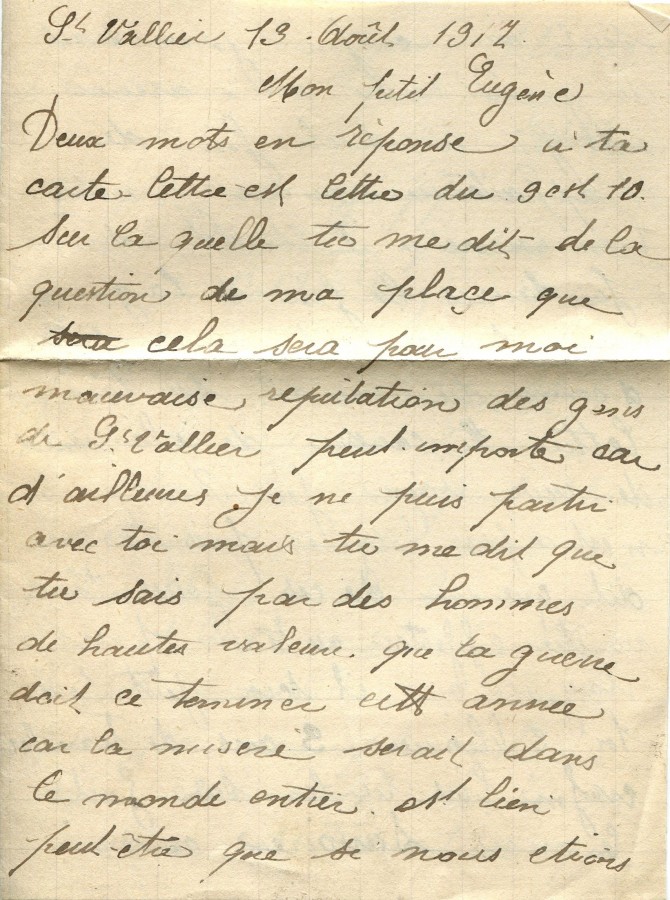 St Vallier 13 Août 1917
Mon petit Eugène
Deux mots en réponse a ta
carte lettre est lettre du 9 est 10.
Sur la quelle tu me dit de la
question de ma plaçe que
cela sera pour moi
mauvaise reputation des gens
de St Vallier peut importe car
d'ailleures je ne puis partir
avec toi mais tu me dit que
tu sais par des hommes
de hautes valeur. que la guerre
doit ce terminer cette année
car la misere serait dans
le monde entier. est bien
peut-être que si nous etions